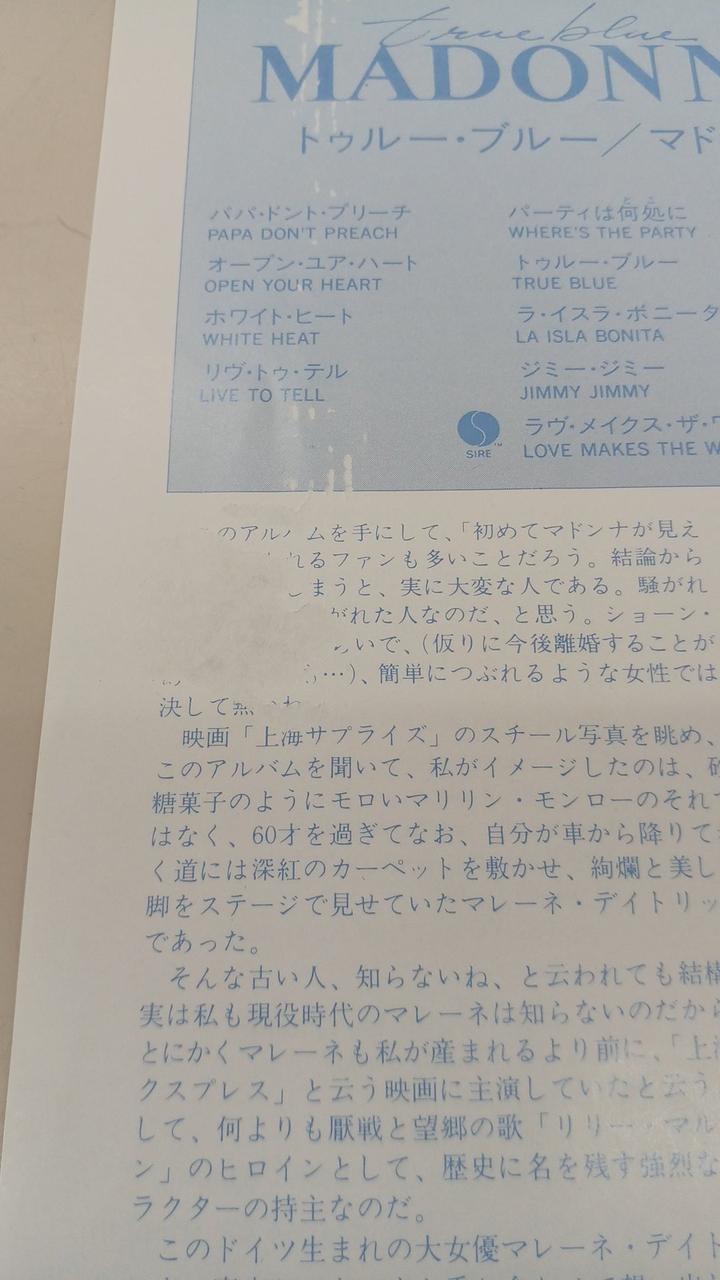 true blue
MADONN
トゥルー・ブルー／マド
パパ・ドント・プリーチ
PAPA DON'T PREACH
オープン・ユア・ハート
OPEN YOUR HEART
ホワイト・ヒート
WHITE HEAT
リヴ・トゥ・テル
LIVE TO TELL
パーティは何処に
WHERE'S THE PARTY
トゥルー・ブルー
TRUE BLUE
ラ・イスラ・ボニータ
LA ISLA BONITA
ジミー・ジミー
JIMMY JIMMY
ラヴ・メイクス・ザ・ワ
LOVE MAKES THE W
SIRE™
のアルバムを手にして、「初めてマドンナが見え
れるファンも多いことだろう。結論から
しまうと、実に大変な人である。騒がれ
がれた人なのだ、と思う。ショーン・
いで、（仮りに今後離婚することが
…）、簡単につぶれるような女性では
決して
映画「上海サプライズ」のスチール写真を眺め、
このアルバムを聞いて、私がイメージしたのは、砂
糖菓子のようにモロいマリリン・モンローのそれで
はなく、60才を過ぎてなお、自分が車から降りて
く道には深紅のカーペットを敷かせ、絢爛と美し
脚をステージで見せていたマレーネ・デイトリッ
であった。
そんな古い人、知らないね、と云われても結構
実は私も現役時代のマレーネは知らないのだから
とにかくマレーネも私が産まれるより前に、「上海
クスプレス」と云う映画に主演していたと云う
して、何よりも厭戦と望郷の歌「リリー・マル
ン」のヒロインとして、歴史に名を残す強烈な
ラクターの持主なのだ。
このドイツ生まれの大女優マレーネ・デイト